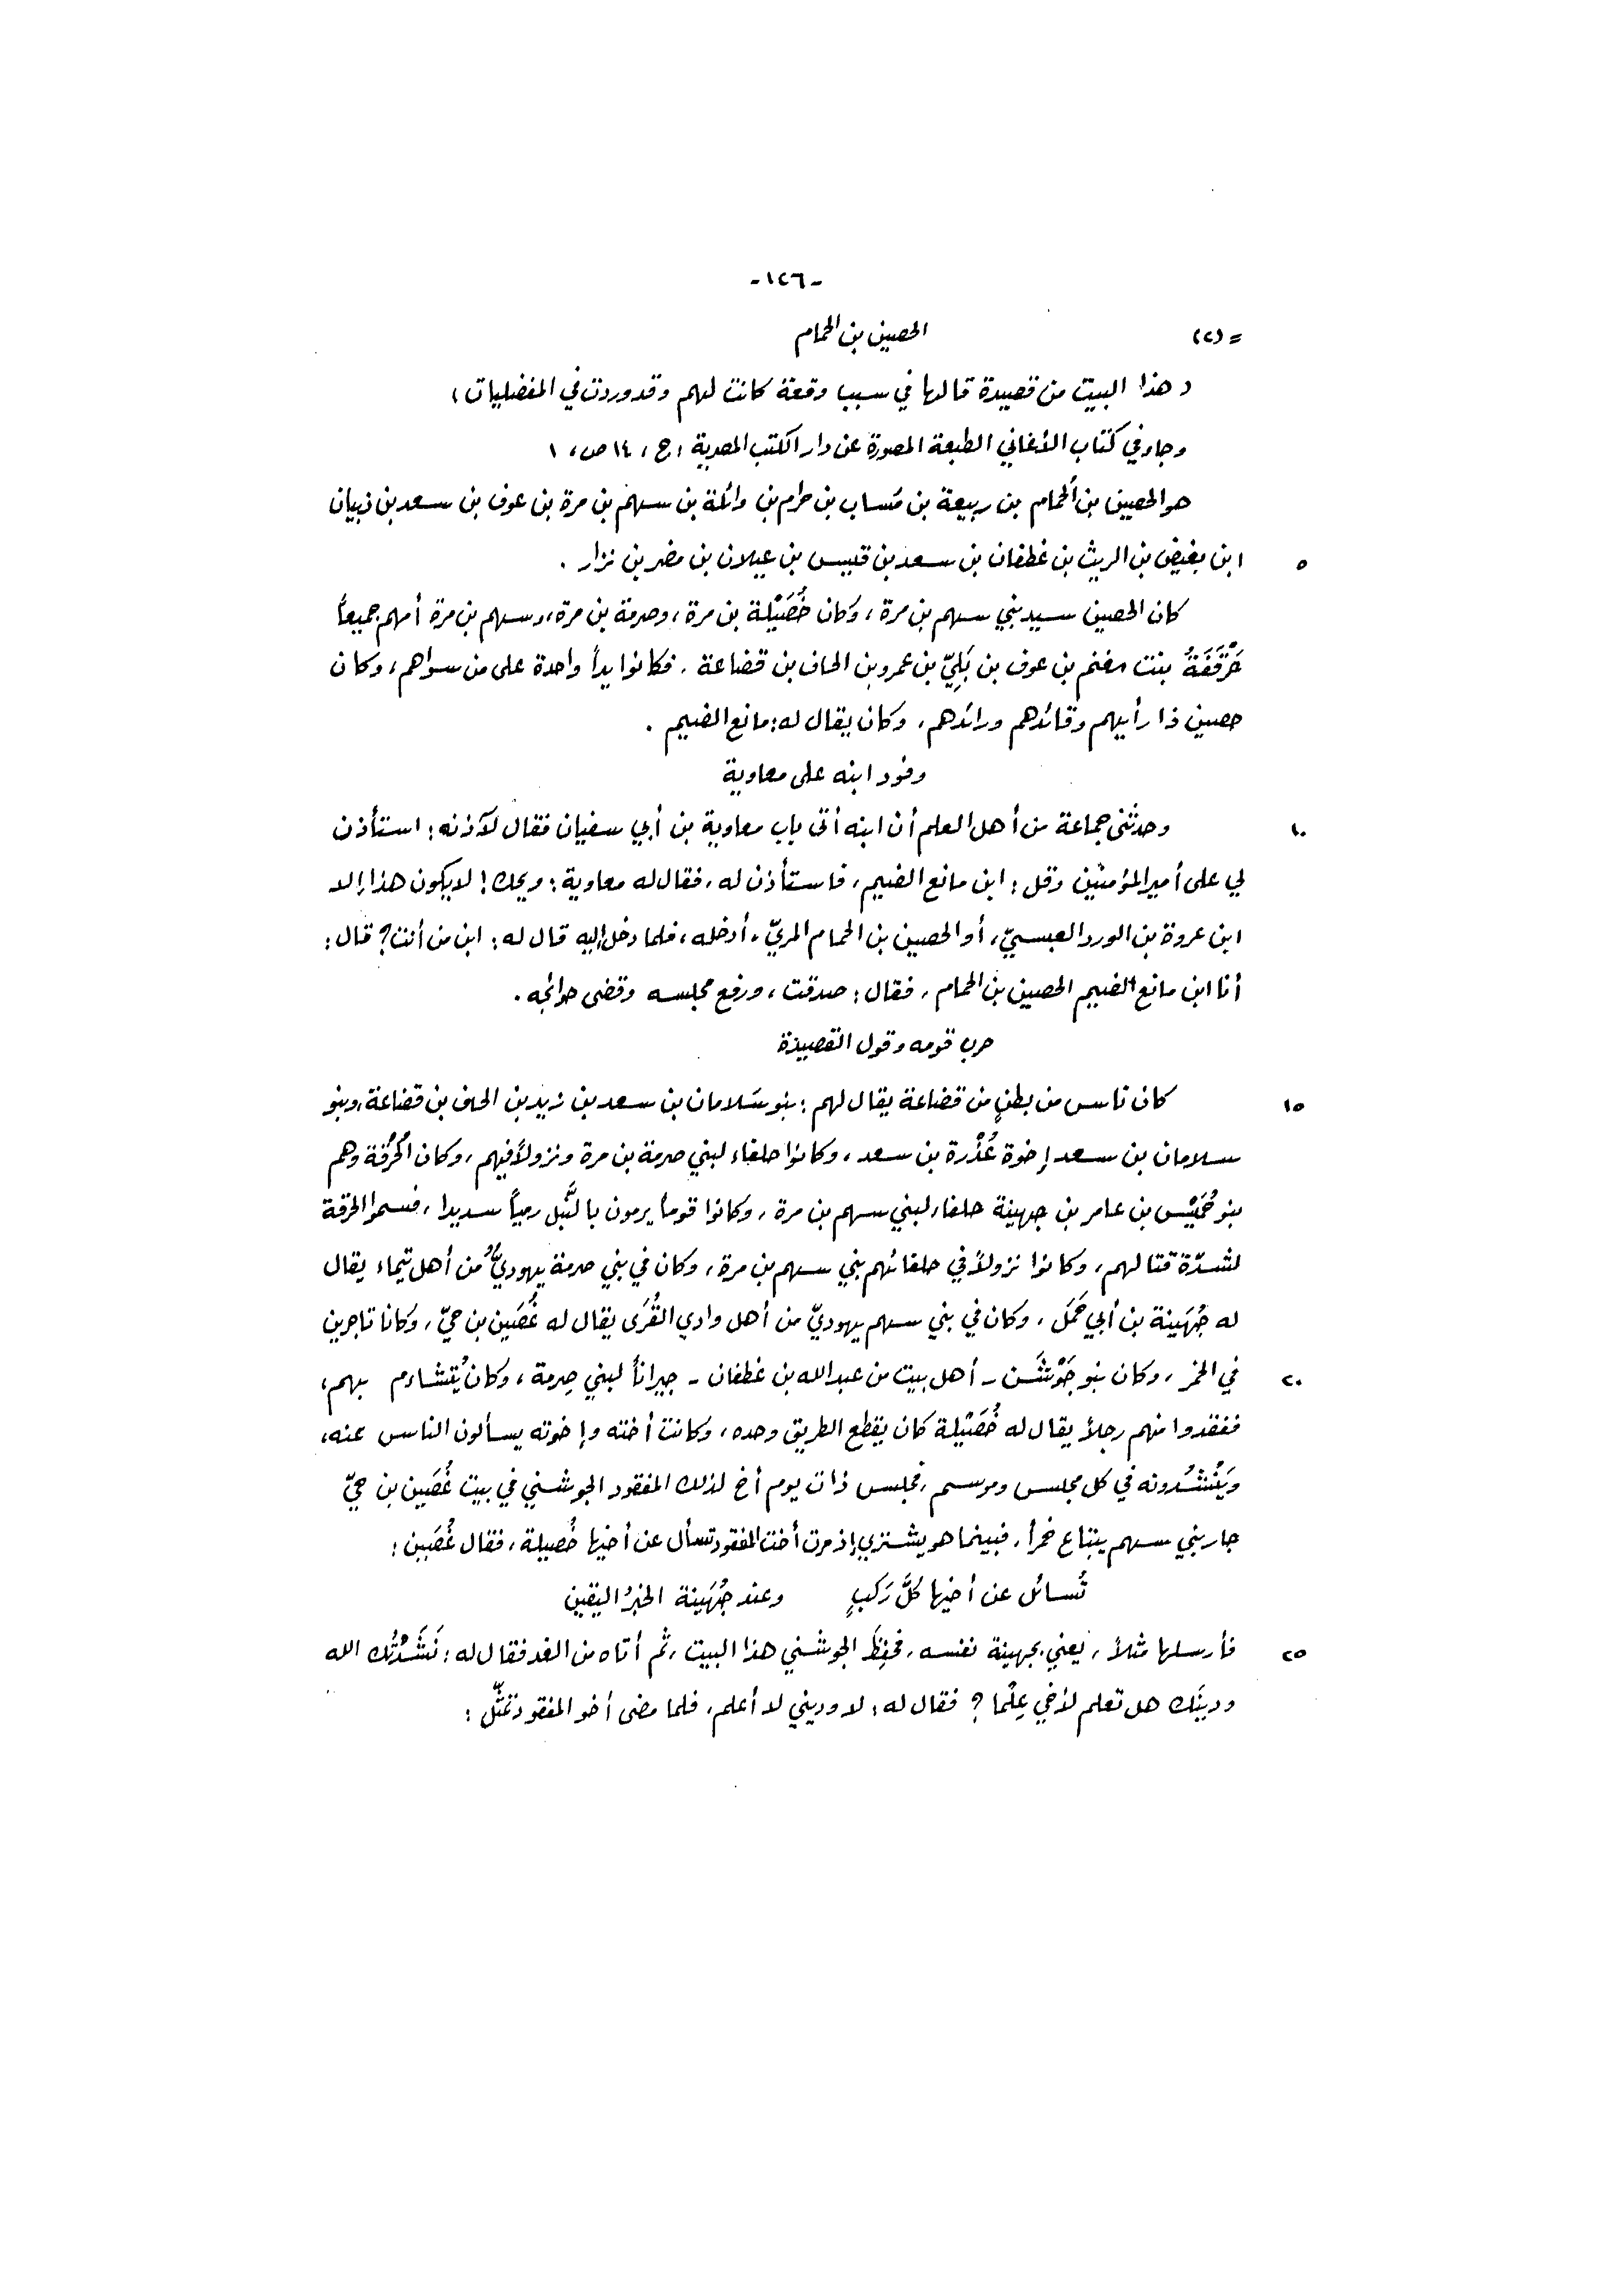 -١٢٦-
= (٢) الحصين بن الحمام
« هذا البيت من قصيدة قالها في سبب وقعة كانت لهم وقد وردت في المفضليات ،
وجاء في كتاب الأغاني الطبعة المصورة عن دار الكتب المصرية ،ج ، ١٤ ص ، ١
هو الحصين بن الحُمام بن ربيعة بن مُساب بن حرام بن وائلة بن سهم بن مرة بن عوف بن سعد بن ذبيان
٥ ابن بغيض بن الريث بن غطفان بن سعد بن قيس بن عيلان بن مضر بن نزار .
كان الحصين سيد بني سهم بن مرة ، وكان خُصَيْلة بن مرة ، وصرمة بن مرة ، وسهم بن مرة أمهم جميعاً
حَرْقَفَةُ بنت مغنم بن عوف بن بَلِيّ بن عمرو بن الحاف بن قضاعة . فكانوا يداً واحدة على من سواهم ، وكان
حصين ذا رأيهم وقائدهم ورائدهم ، وكان يقال له : مانع الضيم .
وفود ابنه على معاوية
١٠ وحدثني جماعة من أهل العلم أن ابنه أتى باب معاوية بن أبي سفيان فقال لآذنه : استأذن
لي على أمير المؤمنين وقل : ابن مانع الضيم ، فاستأذن له ، فقال له معاوية : ويحك ! لا يكون هذا إلا
ابن عروة بن الورد العبسيّ ، أو الحصين بن الحمام المريّ ، أدخله ، فلما دخل إليه قال له : ابن من أنت ؟ قال :
أنا ابن مانع الضيم الحصين بن الحمام ، فقال : صدقت ، ورفع مجلسه وقضى حوائجه .
حرب قومه وقول القصيدة
١٥ كان ناس من بطنٍ من قضاعة يقال لهم : بنو سَلامان بن سعد بن زيد بن الحاف بن قضاعة ، وبنو
سلامان بن سعد إخوة عُذْرة بن سعد ، وكانوا حلفاء لبني صرمة بن مرة ونزولاً فيهم ، وكان الحُرَقة وهم
بنو حُمَيْس بن عامر بن جهينة حلفاء لبني سهم بن مرة ، وكانوا قوماً يرمون بالنَّبل رمياً سديدا ، فسموا الحرقة
لشدّة قتالهم ، وكانوا نزولاً في حلفائهم بني سهم بن مرة ، وكان في بني صرمة يهوديٌّ من أهل تيماء يقال
له جُهَينة بن أبي حَمَل ، وكان في بني سهم يهوديّ من أهل وادي القُرَى يقال له غُصَين بن حيّ ، وكانا تاجرين
٢٠ في الخمر ، وكان بنو جَوْشَن - أهل بيت من عبد الله بن غطفان - جيراناً لبني صِرمة ، وكان يُتشاءم بهم ،
ففقدوا منهم رجلاً يقال له خُصَيْلة كان يقطع الطريق وحده ، وكانت أخته وإخوته يسألون الناس عنه ،
ويَنْشُدونه في كل مجلس وموسم ، فجلس ذات يوم أخ لذلك المفقود الجوشني في بيت غُصَين بن حيّ
جار بني سهم يبتاع خمراً ، فبينما هو يشتري إذ مرت أخت المفقود تسأل عن أخيها خُصيلة ، فقال غُصَين :
تُسائل عن أخيها كُلَّ رَكبٍ وعند جُهَينة الخبرُ اليقين
٢٥ فأرسلها مثلاً ، يعني بجهينة نفسه ، فحفِظَ الجوشني هذا البيت ، ثم أتاه من الغد فقال له : نَشَدْتُك الله
ودينَك هل تعلم لأخي عِلْما ؟ فقال له : لا وديني لا أعلم ، فلما مضى أخو المفقود تمثّل :